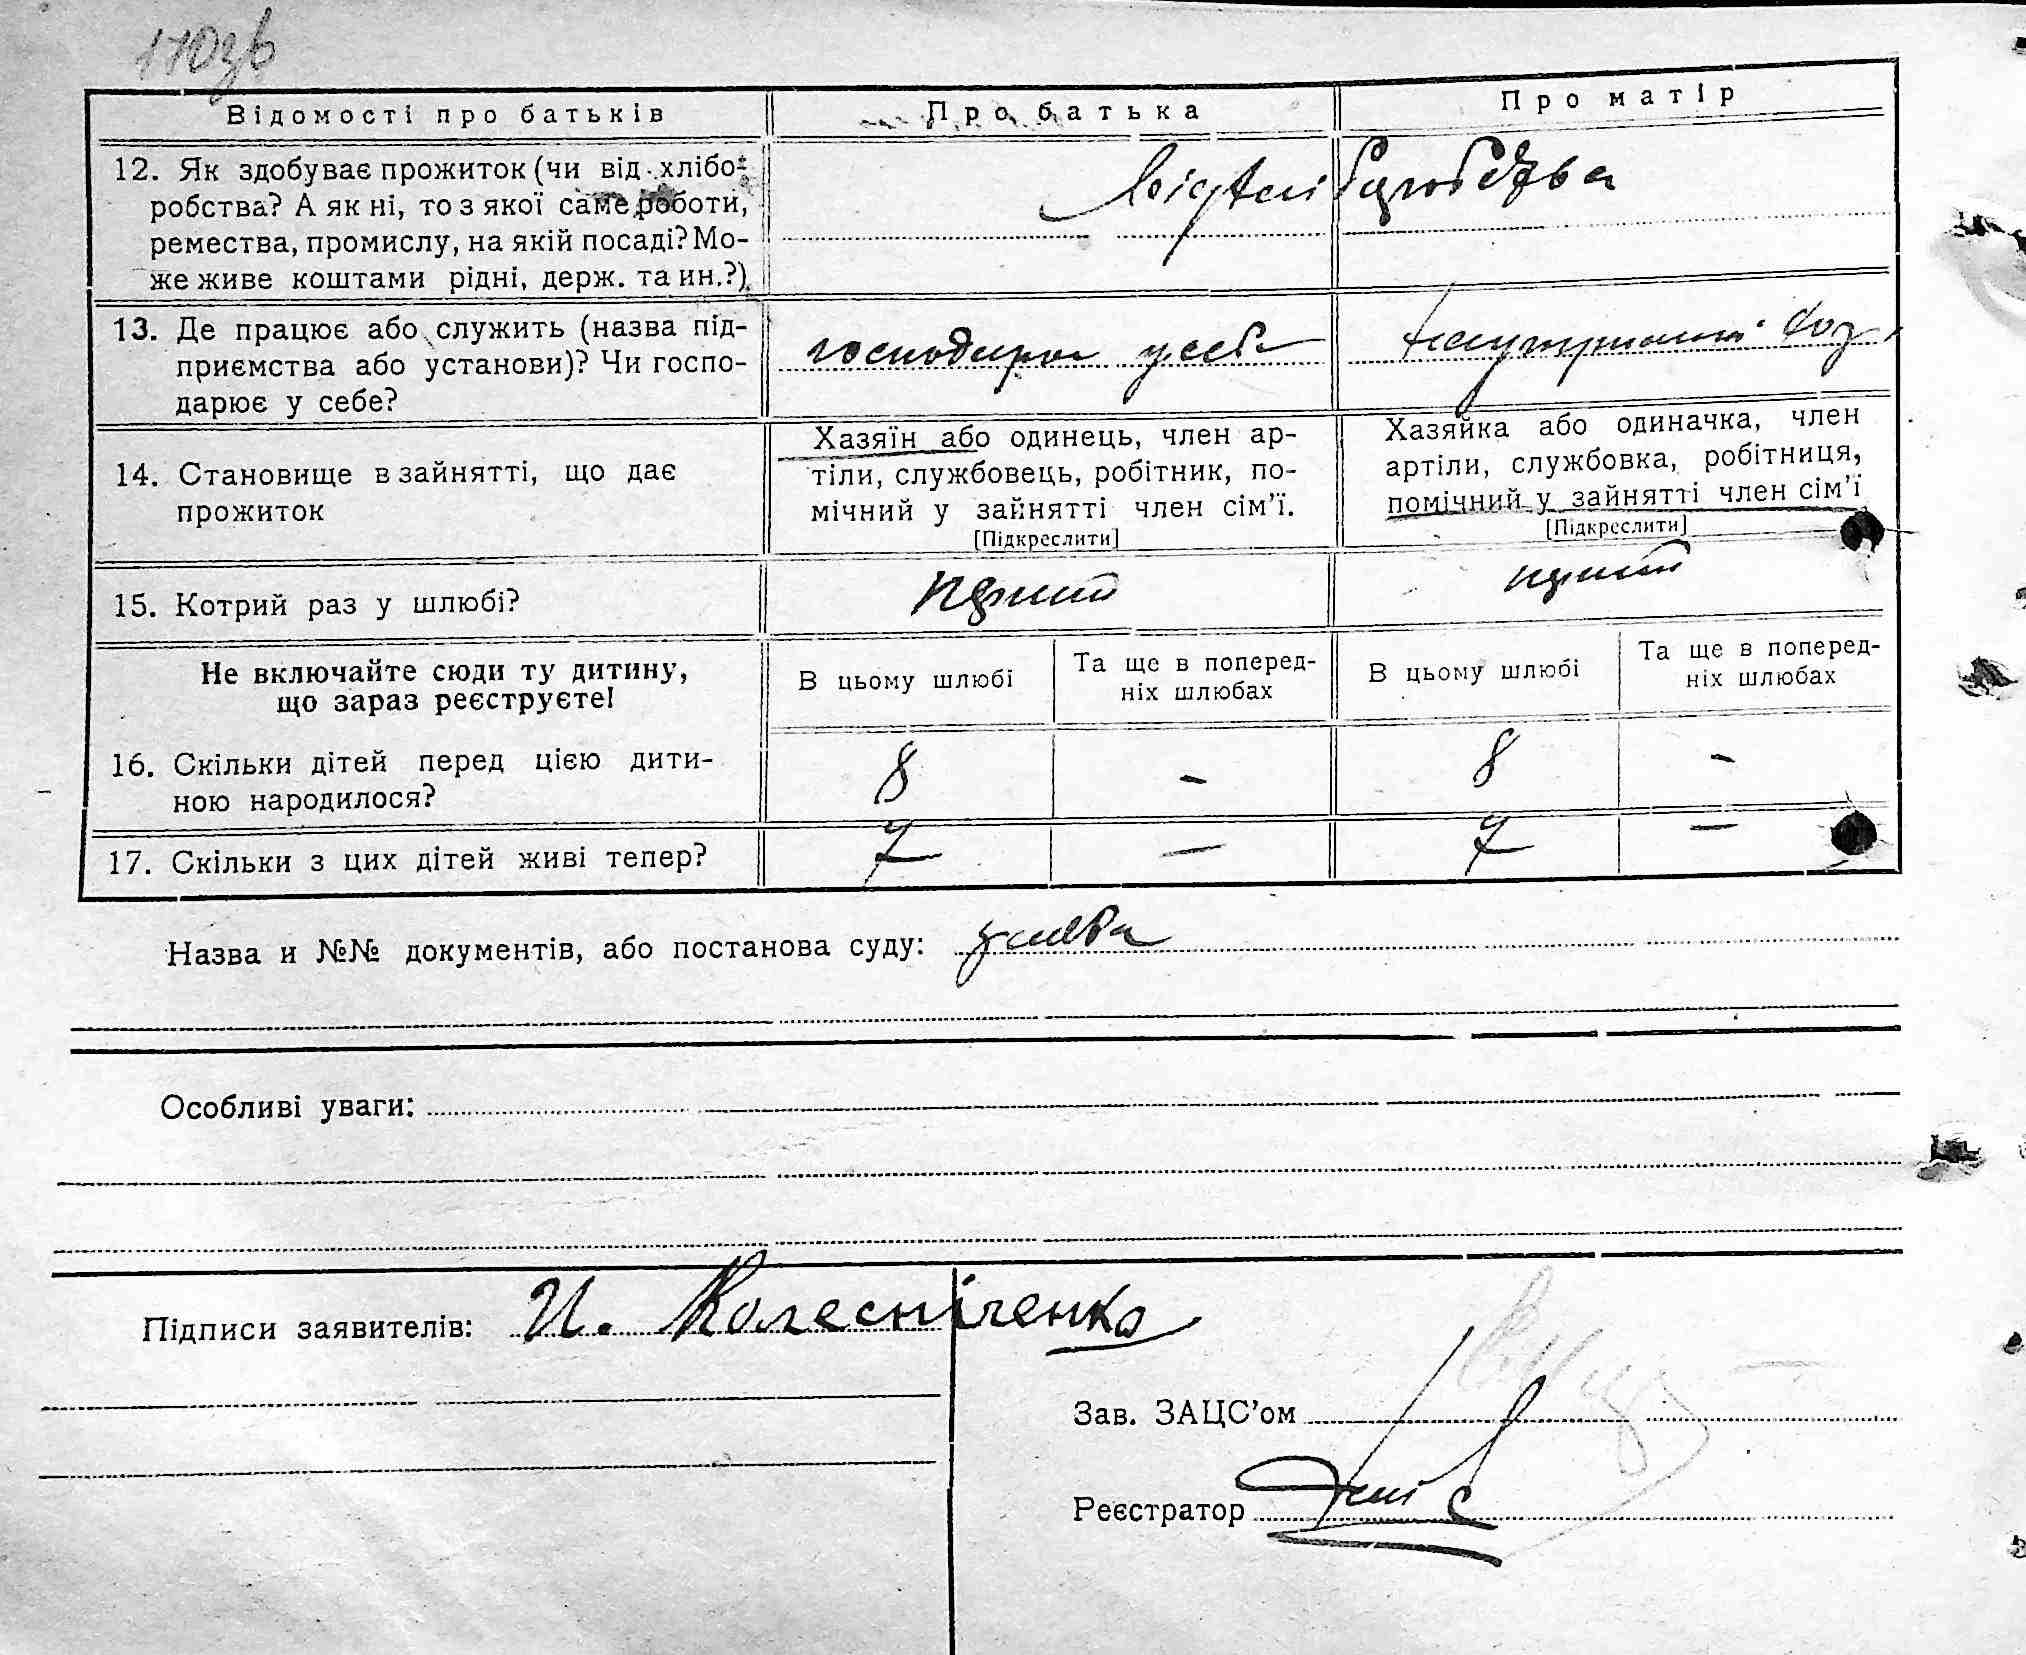 170зв
Відомості про батьків
Про батька
Про матір
12. Як здобуває прожиток (чи від хлібо-
робства? А як ні, то з якої саме роботи,
ремества, промислу, на якій посаді? Мо-
же живе коштами рідні, держ. та ин.?)
від хліборобства
13. Де працює або служить (назва під-
приємства або установи)? Чи госпо-
дарює у себе?
господарює у себе
14. Становище в зайнятті, що дає
прожиток
Хазяїн або одинець, член ар-
тіли, службовець, робітник, по-
мічний у зайнятті член сім'ї.
[Підкреслити]
Хазяйка або одиначка, член
артіли, службовка, робітниця,
помічний у зайнятті член сім'ї
[Підкреслити]
15. Котрий раз у шлюбі?
Не включайте сюди ту дитину,
що зараз реєструєте!
В цьому шлюбі
Та ще в поперед-
ніх шлюбах
В цьому шлюбі
Та ще в поперед-
ніх шлюбах
16. Скільки дітей перед цією дити-
ною народилося?
8 - 8 -
17. Скільки з цих дітей живі тепер?
7 - 7 -
Назва и №№ документів, або постанова суду:
Особливі уваги:
Підписи заявителів: И. Колесніченко
Зав. ЗАЦС'ом
Реєстратор